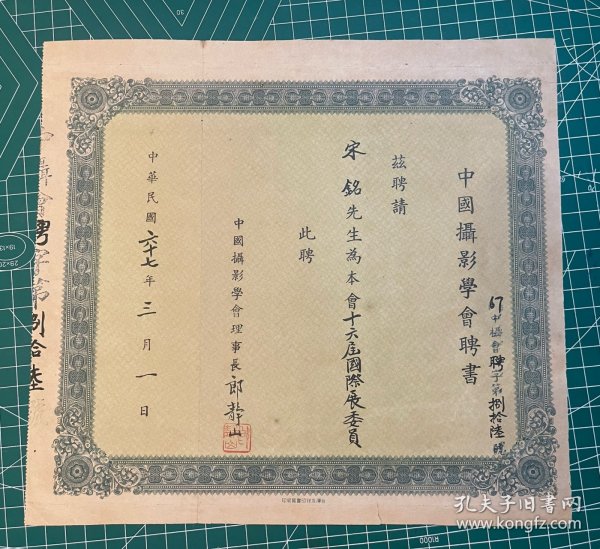 中國攝影學會聘書
67中攝會聘字第捌拾陸號
茲聘請
宋銘先生為本會十六屆國際展委員
此聘
中國攝影學會理事長 郎靜山
中華民國六十七年三月一日
聘字第捌拾陸
孔夫子旧书网
www.kongfz.com